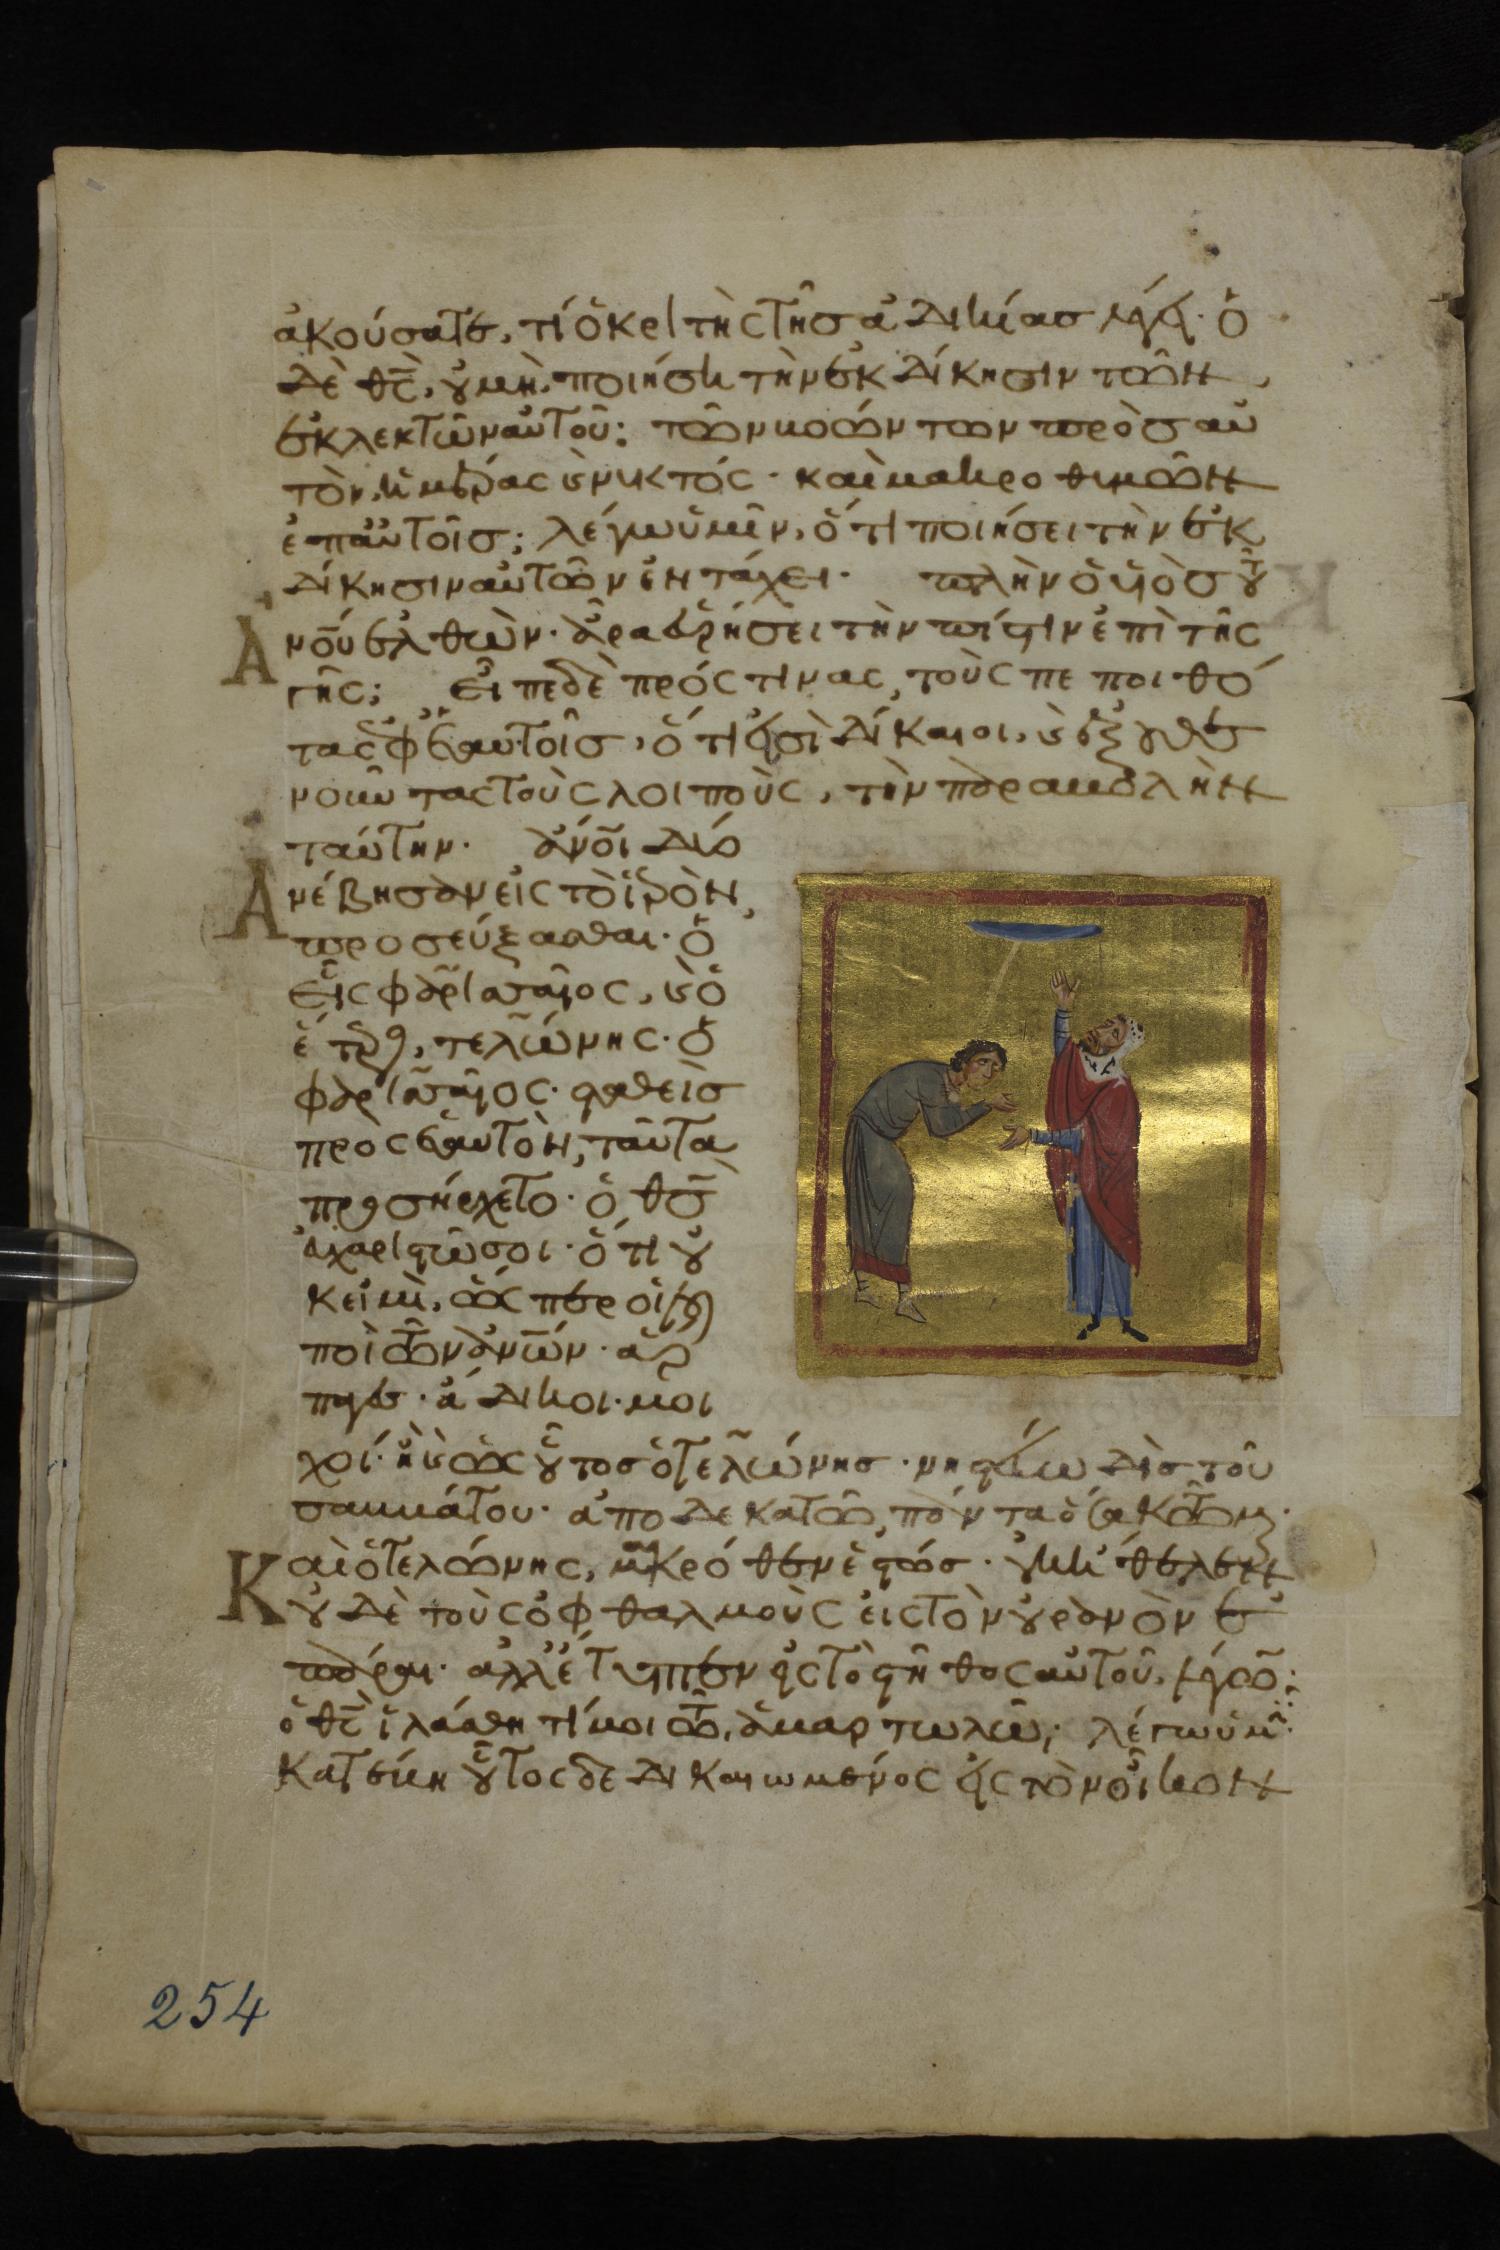 ἀκούσατε, τί ὁ κριτὴς τῆς ἀδικίας λέγει· ὁ
δὲ θ̅ς̅, οὐ μὴ ποιήσει τὴν ἐκδίκησιν τῶν
ἐκλεκτῶν αὐτοῦ; τῶν βοώντων πρὸς αὐ
τὸν, ἡμέρας κ νυκτός· καὶ μακροθυμῶν
ἐπ αὐτοῖς; λέγω ὑμῖν, ὅτι ποιήσει τὴν ἐκ
δίκησιν αὐτῶν ἐν τάχει· πλὴν ὁ υἱὸς τοῦ
Α
ν̅ο̅υ̅ ἐλθὼν· ἆρα εὑρήσει τὴν πίστιν ἐπὶ τῆς
γῆς; Εἶπε δὲ πρός τινας, τοὺς πεποιθό
τας ἐφ ἑαυτοῖς, ὅτι εἰσὶ δίκαιοι, κ ἐξουθε
νοῦντας τοὺς λοιποὺς, τὴν παραβολὴν
ταύτην· ἄν̅ο̅ι δύο
Α
νέβησαν εἰς τὸ ἱερὸν,
προσεύξασθαι· ὁ
εἷς φαρισαῖος, κ ὁ
ἕτερος, τελώνης· ὁ
φαρισαῖος· σταθεὶς
πρὸς ἑαυτὸν, ταῦτα
προσηύχετο· ὁ θ̅ς̅
εὐχαριστῶ σοι· ὅτι οὐ
κ εἰμὶ, ὥσπερ οἱ λοι
ποὶ τῶν ἀν̅ω̅ν· ἅρ
παγες· ἄδικοι· μοι
χοί· ἢ κ ὡς οὗτος ὁ τελώνης· νηστεύω δὶς τοῦ
σαββάτου· ἀποδεκατῶ, πάντα ὅσα κτῶμαι·
Κ
αὶ ὁ τελώνης, μακρόθεν ἑστώς· οὐκ ἤθελεν
οὐδὲ τοὺς ὀφθαλμοὺς εἰς τὸν οὐρανὸν ἐ
πάραι· ἀλλ ἔτυπτεν εἰς τὸ στῆθος αὐτοῦ, λέγων·
ὁ θ̅ς̅ ἱλάσθητί μοι τῶ ἁμαρτωλῶ; λέγω ὑμῖν·
κατέβη οὗτος δεδικαιωμένος εἰς τὸν οἶκον
254